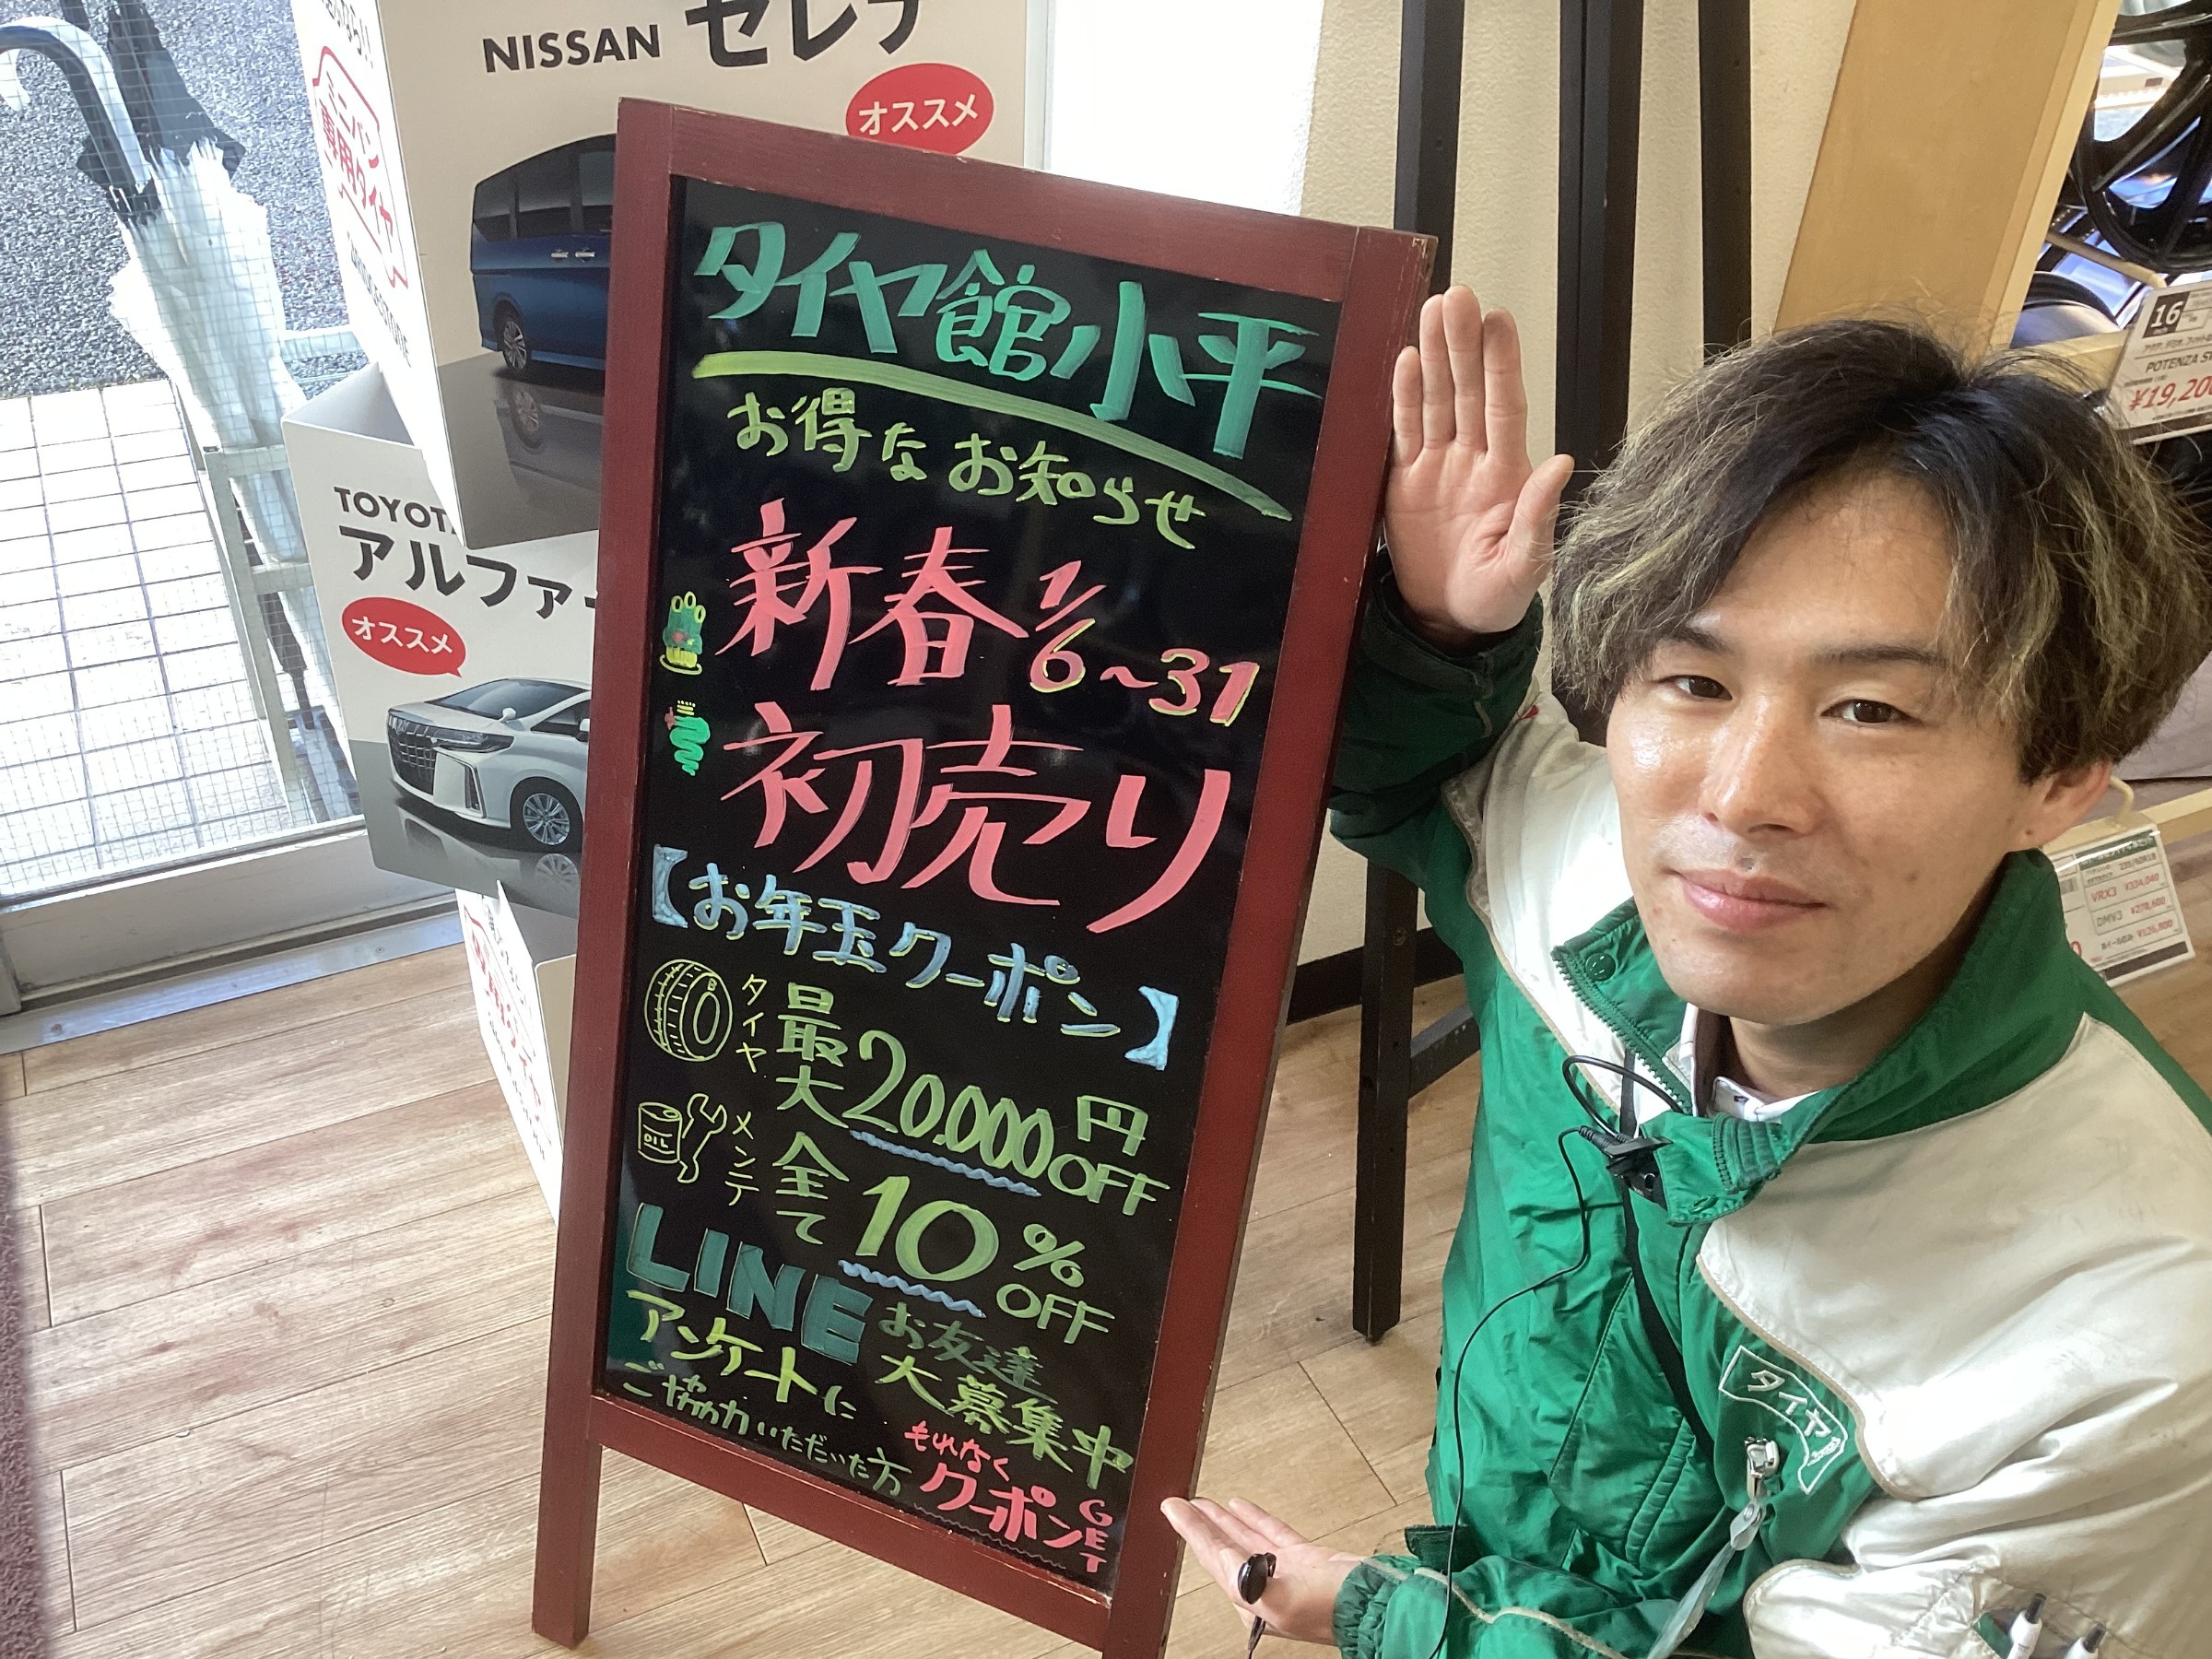 NISSAN セレナ
オススメ
ミニバン
専用タイヤ
TOYOTA
アルファー
オススメ
タイヤ館小平
お得なお知らせ
新春 1/6~31
初売り
【お年玉クーポン】
タイヤ 最大20.000円OFF
OIL
メンテ 全て10%OFF
LINE お友達大募集中
アンケートに
ご協力いただいた方
もれなく
クーポンGET
16
POTENZA
¥19,20
VRX3
DMV3
タイヤ